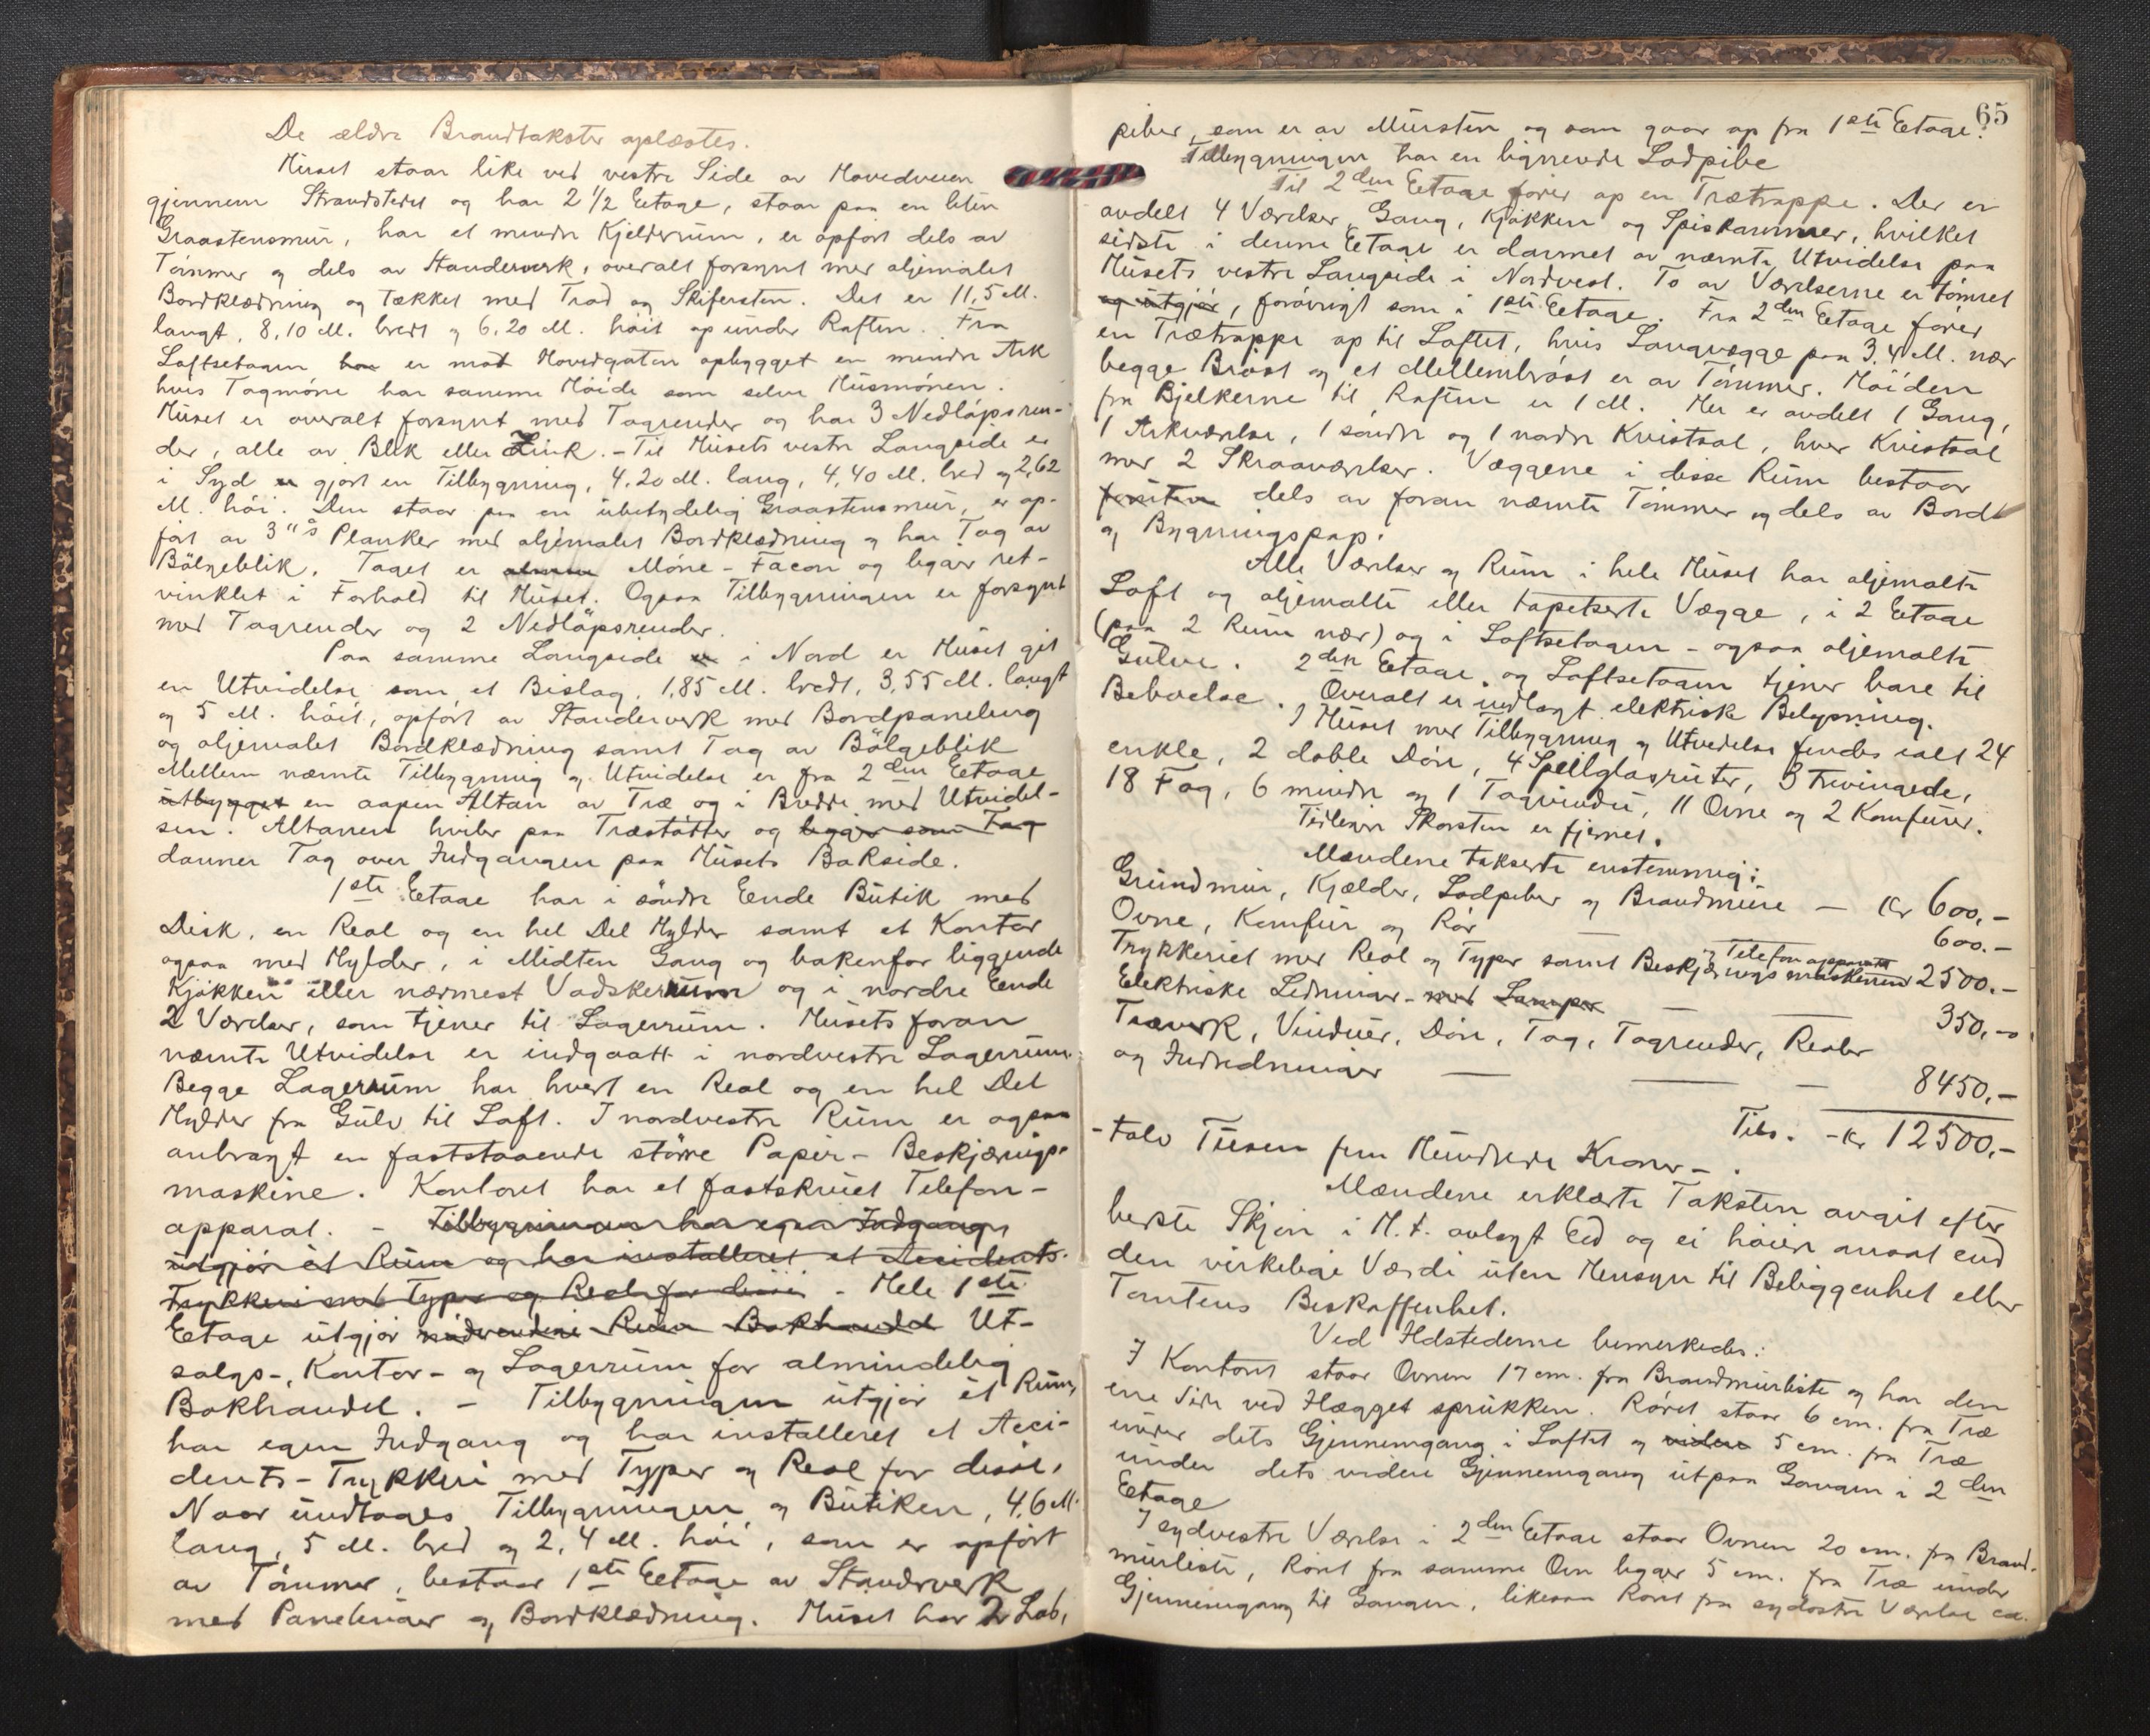 De ældre Brandtakster oplæstes.
Huset staar like ved vestre Side av Hovedveien
gjennem Strandstedet og har 2 1/2 Etage, staar paa en liten
Graastensmur, har et mindre Kjelderrum, er opført dels av
Tømmer og dels av Standerverk, overalt forsynt med oljemalet
Bordklædning og tækket med Træ og Skifersten. Det er 11,5 M.
langt, 8,10 M. bredt og 6,20 M. høit op under Raften. Fra
Loftsetagen har er mot Hovedgaten opbygget en mindre Ark
hvis Tagmøne har samme Høide som selve Husmønen.
Huset er overalt forsynt med Tagrender og har 3 Nedløpsren-
der, alle av Blik eller Zink. - Til Husets vestre Langside er
i Syd er gjort en Tilbygning, 4,20 M. lang, 4,40 M. bred og 2,62
M. høi. Den staar paa en ubetydelig Graastensmur, er op-
ført av 3"s Planker med oljemalet Bordklædning og har Tag av
Bølgeblik. Taget er Møne-Facon og ligger ret-
vinklet i Forhold til Huset. Ogsaa Tilbygningen er forsynt
med Tagrender og 2 Nedløpsrender.
Paa samme Langside er i Nord er Huset git
en Utvidelse som et Bislag, 1,85 M. bredt, 3,55 M. langt
og 5 M. høit, opført av Standerverk med Bordpaneling
og oljemalet Bordklædning samt Tag av Bølgeblik
Mellem nævnte Tilbygning og Utvidelse er fra 2den Etage
utbygget en aapen Altan av Træ og i Bredde med Utvidel-
sen. Altanen hviler paa Træstøtter og ligger som Tag
danner Tag over Indgangen paa Husets Bakside.
1ste Etage har i søndre Ende Butik med
Disk, en Reol og en hel Del Hylder samt et Kontor
ogsaa med Hylder, i Midten Gang og bakenfor liggende
Kjøkken eller nærmest Vadskerum og i nordre Ende
2 Værelser, som tjener til Lagerrum. Husets foran
nævnte Utvidelse er indgaatt i nordvestre Lagerrum.
Begge Lagerrum har hvert en Reol og en hel Del
Hylder fra Gulv til Loft. I nordvestre Rum er ogsaa
anbragt en faststaaende større Papir-Beskjærings-
maskine. Kontoret har et fastskruet Telefon-
apparat. - Tilbygningen har egen Indgang,
utgjør et Rum og har installeret et Accidents-
Trykkeri med Typer og Reol for disse. - Hele 1ste
Etage utgjør nødvendige Rum Bokhandel Ut-
salgs-, Kontor- og Lagerrum for almindelig
Bokhandel. - Tilbygningen utgjør ét Rum,
har egen Indgang og har installeret et Acci-
dents-Trykkeri med Typer og Reol for disse.
Naar undtages Tilbygningen og Butiken, 4,6 M.
lang, 5 M. bred og 2,4 M. høi, som er opført
av Tømmer, bestaar 1ste Etage av Standerverk
med Panelinger og Bordklædning. Huset har 2 Lod-
65
piber, som er av Mursten og som gaar op fra 1ste Etage.
Tilbygningen har en lignende Lodpibe
Til 2den Etage fører op en Trætrappe. Der er
avdelt 4 Værelser, Gang, Kjøkken og Spiskammer, hvilket
sidste i denne Etage er dannet av nævnte Utvidelse paa
Husets vestre Langside i Nordvest. To av Værelserne er tømret
og utgjør, forøvrigt som i 1ste Etage. Fra 2den Etage fører
en Trætrappe op til Loftet, hvis Langvægge paa 3,4 M. nær
begge Brøst og et Mellembrøst er av Tømmer. Høiden
fra Bjelkerne til Raften er 1 M. Her er avdelt 1 Gang,
1 Arkværelse, 1 søndre og 1 nordre Kvistsal, hver Kvistsal
med 2 Skraaværelser. Væggene i disse Rum bestaar
foruten dels av foran nævnte Tømmer og dels av Bord
og Bygningspap.
Alle Værelser og Rum i hele Huset har oljemalte
Loft og oljemalte eller tapetserte Vægge, i 2 Etage
(paa 2 Rum nær) og i Loftsetagen - ogsaa oljemalte
Gulve. 2den Etage og Loftsetagen tjener bare til
Beboelse. Overalt er indlagt elektrisk Belysning.
I Huset med Tilbygning og Utvidelse findes ialt 24
enkle, 2 doble Døre, 4 Speilglasruter, 3 trevingede,
18 Fag, 6 mindre og 1 Tagvindu, 11 Ovne og 2 Komfurer.
Tidligere Skorsten er fjernet.
Mændene takserte enstemmig:
Grundmur, Kjælder, Lodpiber og Brandmure — Kr 600,-
Ovne, Komfur og Rør 600.-
og Telefonapparat
Trykkeriet med Reol og Typer samt Beskjæringsmaskinen 2500.-
Elektriske Ledninger - med Lamper — 350,-
Træverk, Vinduer, Døre, Tag, Tagrender, Reoler
og Indredninger — — — 8450,-
Tils. - Kr 12500,-
- tolv Tusen fem Hundrede Kroner -.
Mændene erklærte Taksten avgit efter
beste Skjøn i H.t. avlagt Ed og ei høiere ansat end
den virkelige Værdi uten Hensyn til Beliggenhet eller
Tomtens Beskaffenhet.
Ved Ildstederne bemerkedes:
I Kontoret staar Ovnen 17 cm. fra Brandmurliste og har den
ene Side ved Ilægget sprukken. Røret staar 6 cm. fra Træ
under dets Gjennemgang i Loftet og videre 5 cm. fra Træ
under dets videre Gjennemgang utpaa Gangen i 2den
Etage
I sydvestre Værelse i 2den Etage staar Ovnen 20 cm. fra Brand-
murliste, Røret fra samme Ovn ligger 5 cm. fra Træ under
Gjennemgang til Gangen, likesaa Røret fra sydøstre Værelse ca.